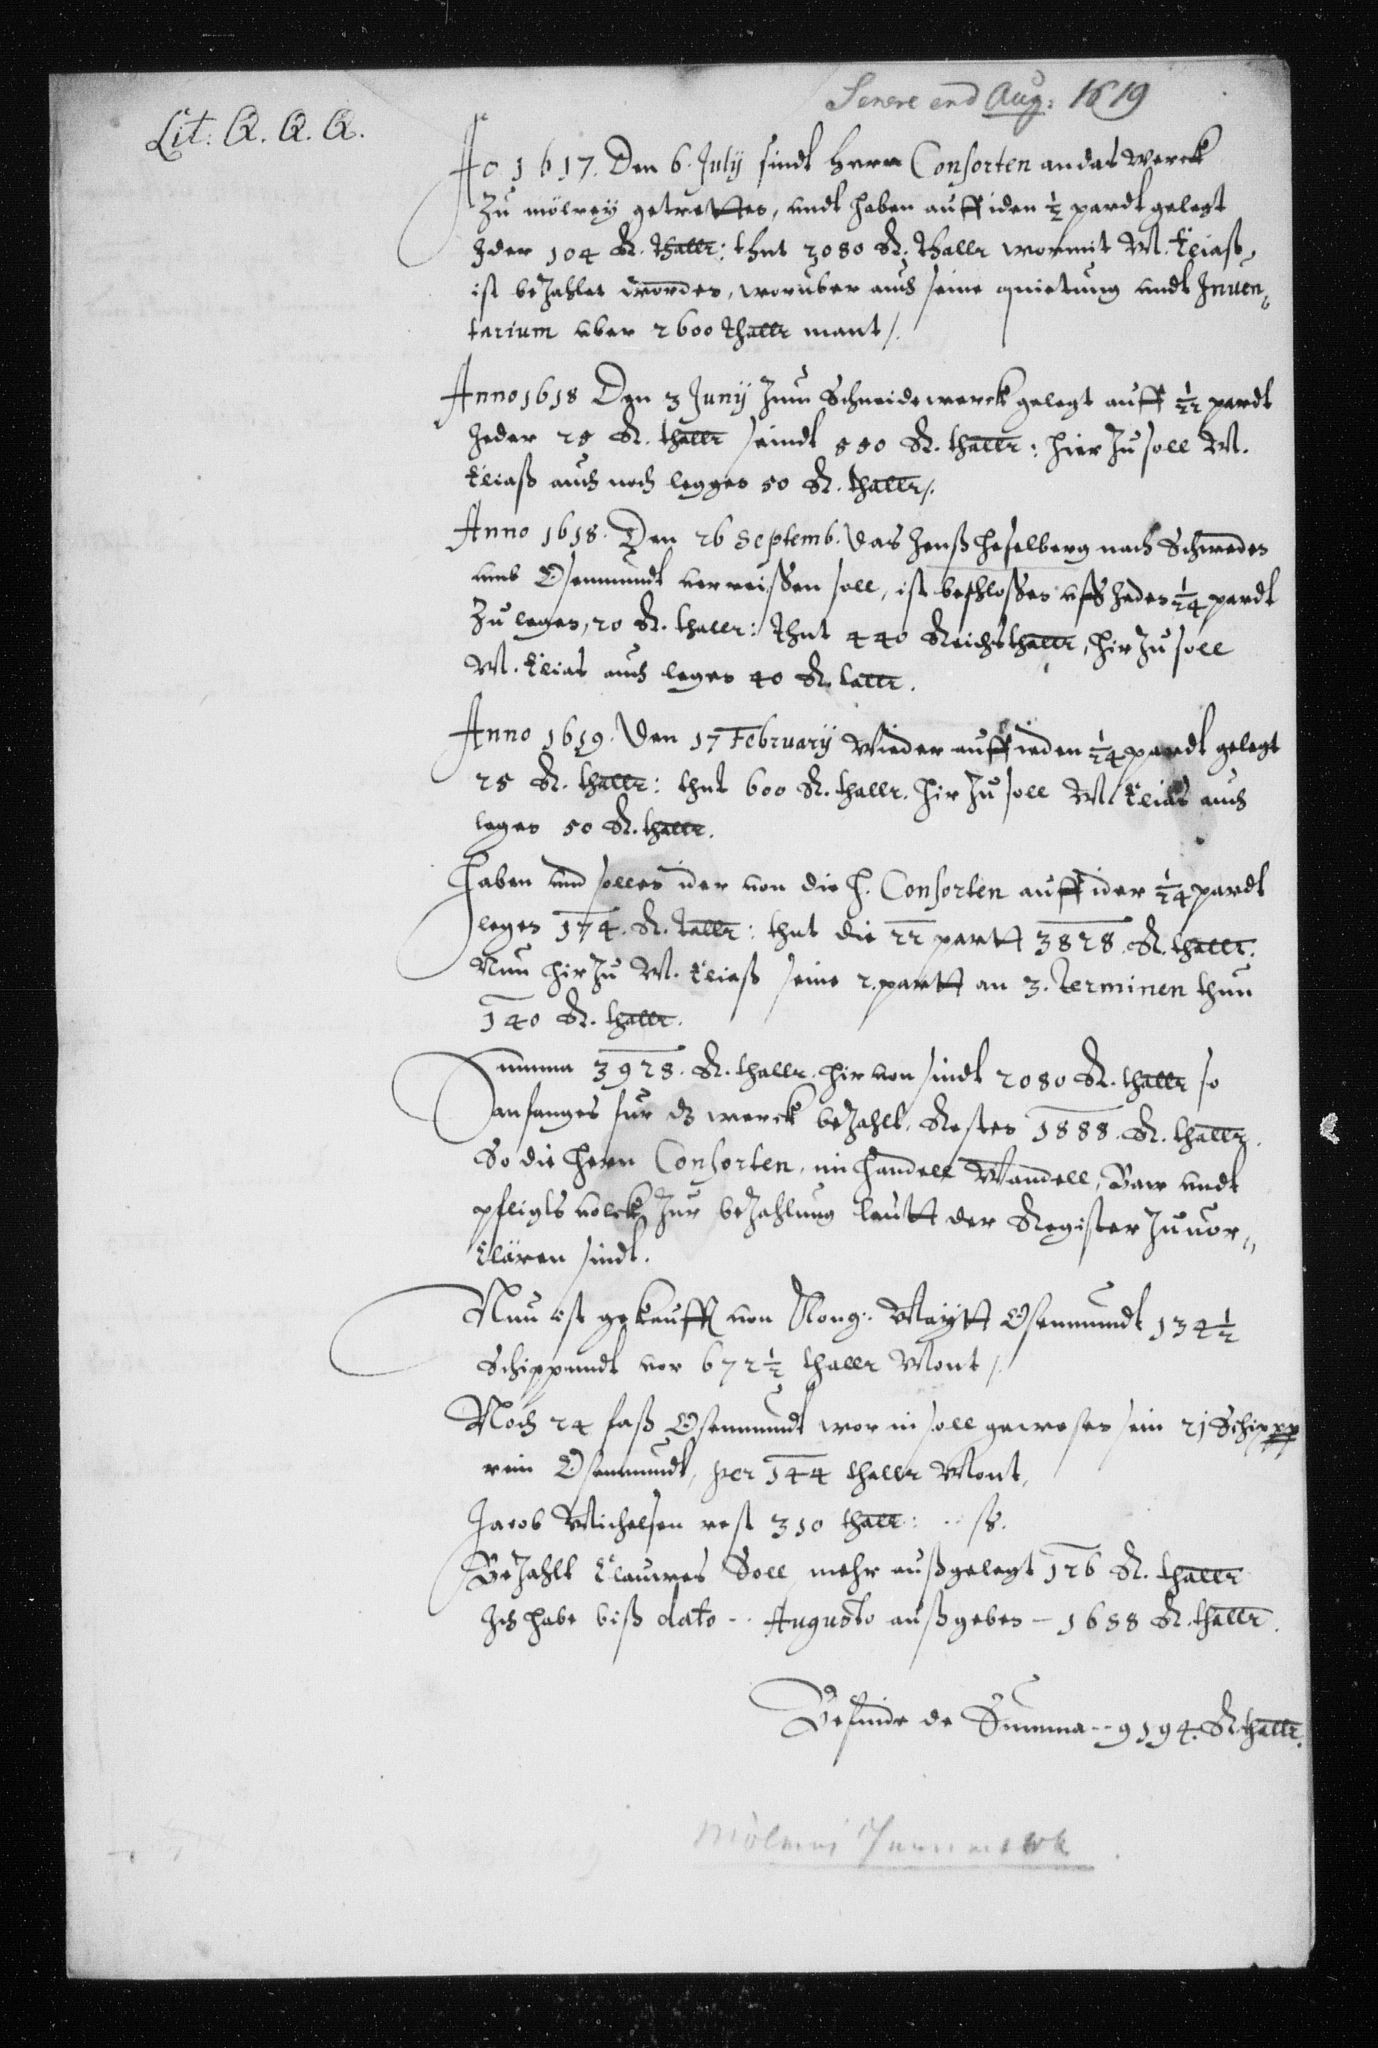 Senere end Aug: 1619
Lit: Q. Q. Q.
Ao 1617. Den 6. July sindt herrn Consorten an das Werck
zu mölrey getretten, undt haben auff iden ½ pardt gelegt
Jder 104 R. thallr: thut 2080 R. thallr wormit M. Eliaß
ist bezahlet worden, woruber auch seine quietung undt Inven„
tarium uber 2600 thallr mont /.
Anno 1618 Den 3 Junij Zum Schneidewerck gelegt auff 1/22 pardt
Jeder 25 R. thallr seindt 550 R. thallr: hier zu soll M.
Eliaß auch noch leggen 50 R. thallr /.
Anno 1618. Den 26 Septemb. Das Jenß Heselberg nach Schweden
umb Osemundt verreissen soll, ist beschlossen uff Jeden 1/24 pardt
Zu legen, 20 R. thallr: thut 440 Reichsthallr, hir zu soll
M. Elias auch legen 40 R. tallr.
Anno 1619. Den 17 February Wieder auff ieden 1/24 pardt gelegt
25 R. thallr: thut 600 R. thallr. hir zu soll M. Elias auch
legen 50 R. thallr.
Haben und sollen ider von die H. Consorten auff ider 1/24 pardt
legen 174. R. tallr: thut die 22 partt 3828. R. thallr.
Nun hir zu M. Eliaß seine 2. partt an 3. Terminen thun
140 R. thallr.
Summa 3928. R. thallr. hir von sindt 2080 R. thallr so
anfanges fur dz werck bezahlt. Resten 1888. R. thallr.
So die Hern Consorten, im Handell Wandell, Baw undt
pfligts volck Zur bezahlung lautt der Register zu vor„
klären sindt.
Nun ist gekaufft von Maytt Osemundt 134½
Schippundt vor 672½ thallr Mont /.
Noch 24 faß Osemundt wor in soll gewesen sein 21 Schippp
rein Osemundt, per 144 thallr Mont,
Jacob Michelsen rest 310 thallr: ·· ß.
Bezahlt Klauwes Soll mehr außgelegt 126 R. thallr
Ich habe biß dato -- Augusto außgeben - 1658 R. thallr.
Befinde de Summa -- 9194. R. thallr.